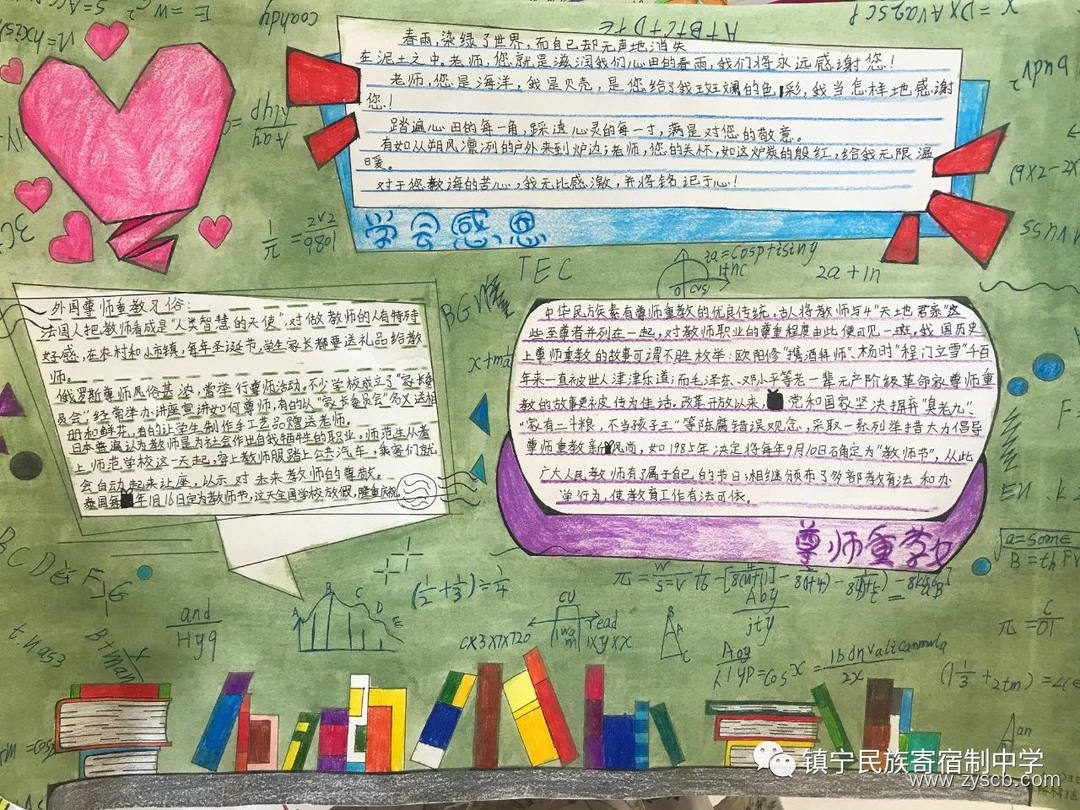 春雨,染绿了世界,而自己却无声地消失
在泥土之中.老师,您就是滋润我们心田的春雨,我们将永远感谢您!
老师,您是海洋,我是贝壳,是您给了我斑斓的色彩,我当怎样地感谢
您!
踏遍心田的每一角,踩透心灵的每一寸,满是对您的敬意。
有如从朔风凛冽的户外来到炉边;老师,您的关怀,如这炉炭的殷红,给我无限温
暖。
对于您教诲的苦心,我无比感激,并将铭记于心!
学会感恩
外国尊师重教习俗:
法国人把教师看成是"人类智慧的天使",对做教师的人有特殊
好感,在农村和小市镇,每年圣诞节,学生家长都要送礼品给教
师。
俄罗斯尊师风俗甚浓,常举行尊师活动。不少学校成立了"家长委
员会",经常举办讲座宣讲如何尊师,有的以"家长委员会"名义送相
册和鲜花,有的让学生制作手工艺品赠送老师,
日本普遍认为教师是为社会作出自我牺牲的职业,师范生从着
上师范学校这一天起,穿上教师服踏上公共汽车,乘客们就
会自动起来让座,以示对未来教师的尊敬。
泰国每年1月16日定为教师节,这天全国学校放假,隆重庆祝
中华民族素有尊师重教的优良传统,古人将教师与"天地君亲"这
些至尊者并列在一起,对教师职业的尊重程度由此便可见一斑,我国历史
上尊师重教的故事可谓不胜枚举:欧阳修"携酒拜师"、杨时"程门立雪"千百
年来一直被世人津津乐道;而毛泽东、邓小平等老一辈无产阶级革命家尊师重
教的故事更被传为佳话。改革开放以来 党和国家坚决摒弃"臭老九"、
"家有三斗粮,不当孩子王"等陈腐错误观念,采取一系列举措大力倡导
尊师重教新风尚,如1985年决定将每年9月10日确定为"教师节",从此
广大人民教师有了属于自己的节日;相继颁布了多部教育法和办
学行为,使教育工作有法可依。
尊师重教
TEC
2a+in
镇宁民族寄宿制中学
www.zyscb.com